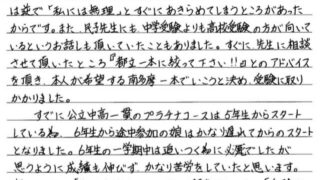 は並で『私には無理』とすぐにあきらめてしまうところがあった
からです。また、民子先生にも、中学受験よりも高校受験の方が向いて
いるというお話しも頂いていたこともありました。すぐに先生に相談
させて頂いたところ『都立一本に絞って下さい!!』とのアドバイス
を頂き、本人が希望する南多摩一本でいこうと決め、受験に取り
かかりました。
すでに公立中高一貫のプラチナコースは5年生からスタート
している為、6年生から途中参加の娘はかなり遅れてからのスタート
となりました。6年生の一学期中は追いつく為に必死でしたが
思うように成績も伸びず、かなり苦労をしていたと思います。